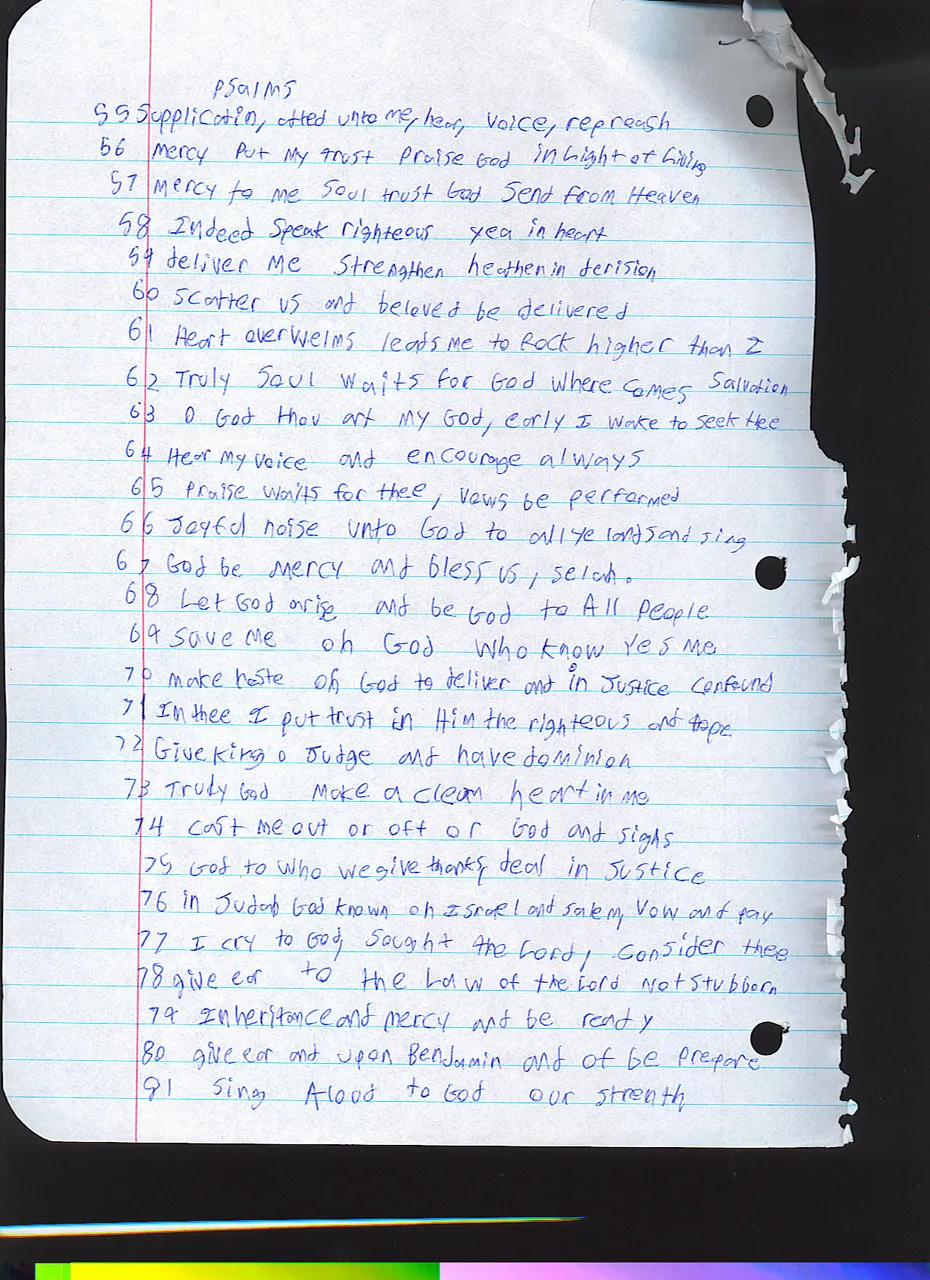 Psalms
55 Supplicatin, atted unto me, hear, voice, repreash
56 Mercy Put My trust Praise God in Light of Living
57 Mercy to me Soul trust God Send from Heaven
58 Indeed Speak righteous yea in heart
59 deliver Me Strengthen heathen in derision
60 Scatter us and beloved be delivered
61 Heart overwelms leads me to Rock higher than I
62 Truly Soul waits for God where comes Salvation
63 O God thou art My God, early I wake to seek thee
64 Hear My voice and encourage always
65 Praise waits for thee, Vows be performed
66 Joyful noise unto God to all ye lands and sing
67 God be Mercy and bless us, selah.
68 Let God arise and be God to All People
69 Save Me oh God Who know Yes Me
70 Make haste oh God to deliver and in Justice confound
71 In thee I put trust in Him the righteous and
72 Give king o Judge and have dominion
73 Truly God Make a clean heart in me
74 cast me out or off or God and sighs
75 God to Who we give thanks, deal in Justice
76 in Judah God known oh Israel and salem, Vow and pay
77 I cry to God, Sought the Lord, consider thee
78 give ear to the Law of the Lord Not Stubborn
79 Inheritance and mercy and be ready
80 give ear and upon Benjamin and of be prepare
81 Sing Aloud to God our strenth